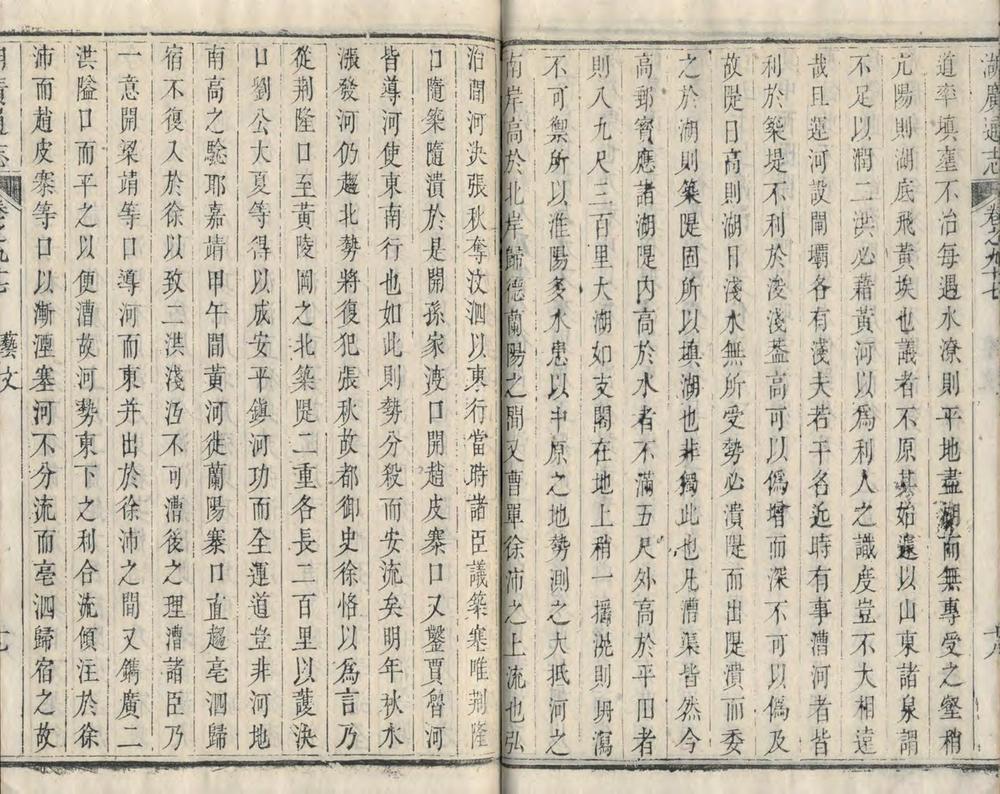 湖廣通志　卷之九十七
道率填壅不治每遇水潦則平地盡湖而無專受之壑稍
亢陽則湖底飛黃埃也議者不原其始遽以山東諸泉謂
不足以潤二洪必藉黃河以爲利人之識度豈不大相遠
哉且運河設閘壩各有淺夫若干名近時有事漕河者皆
利於築堤不利於浚淺葢高可以僞增而深不可以僞及
故隄日高則湖日淺水無所受勢必潰隄而出隄潰而委
之於湖則築隄固所以填湖也非獨此也凡漕渠皆然今
高郵寳應諸湖隄内高於水者不滿五尺外高於平田者
則八九尺三百里大湖如支閣在地上稍一搖洸則坍瀉
不可禦所以淮陽多水患以中原之地勢測之大抵河之
南岸高於北岸歸德蘭陽之間又曹單徐沛之上流也弘
治間河決張秋奪汶泗以東行當時諸臣議築塞唯荆隆
口隨築隨潰於是開孫家渡口開趙皮寨口又鑿賈魯河
皆導河使東南行也如此則勢分殺而安流矣明年秋水
漲發河仍趨北勢將復犯張秋故都御史徐恪以爲言乃
從荆隆口至黃陵岡之北築隄二重各長二百里以護決
口劉公大夏等得以成安平鎮河功而全運道豈非河地
南高之騐耶嘉靖甲午間黃河徙蘭陽寨口直趨亳泗歸
宿不復入於徐以致二洪淺沍不可漕後之理漕諸臣乃
一意開梁靖等口導河而東并出於徐沛之間又鐫廣二
洪隘口而平之以便漕故河勢東下之利合流傾注於徐
沛而趙皮寨等口以漸湮塞河不分流而亳泗歸宿之故
藝文